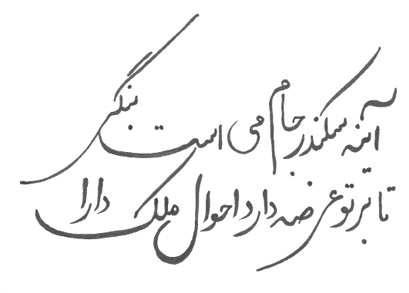 آینه سکندر جام می است بنگر
تا بر تو عرضه دارد احوال ملک دارا